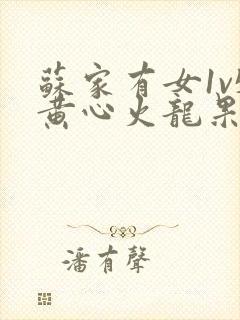 蘇家有女1v
黄心火龍果
潘有聲